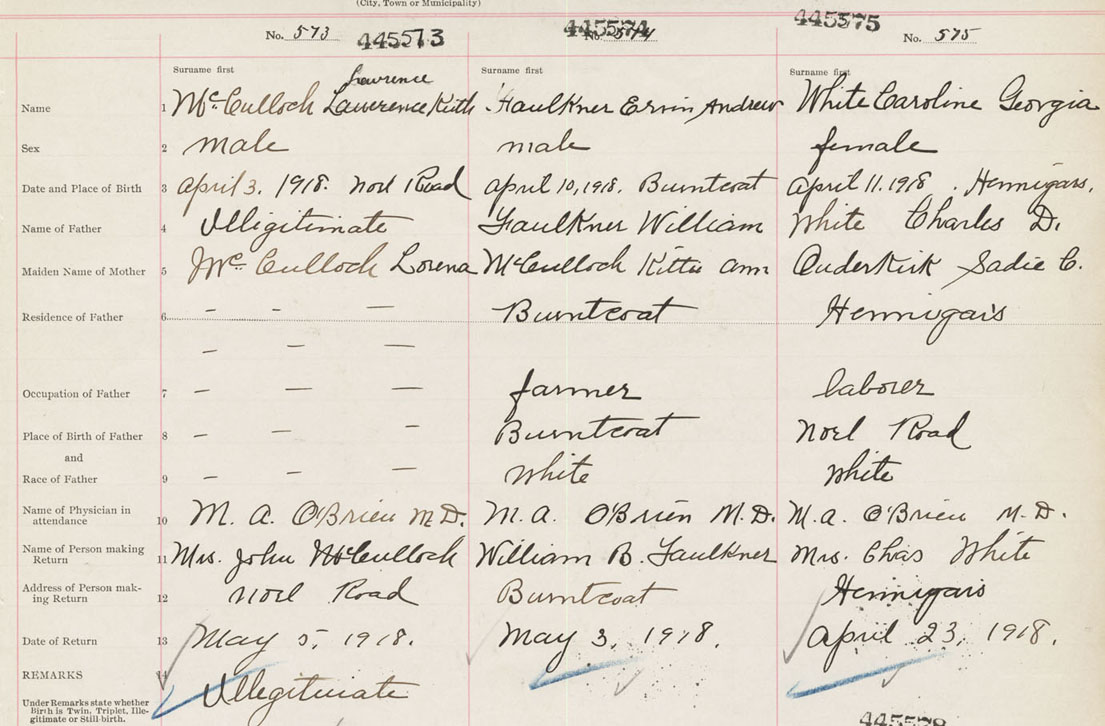 (City, Town or Municipality)
No. 573 445573 445574 No. 574 445575 No. 575
Surname first Surname first Surname first
Lawrence
Name 1 McCulloch Lawerence Keith Faulkner Ervin Andrew White Caroline Georgia
Sex 2 male male female
Date and Place of Birth 3 April 3. 1918. Noel Road April 10, 1918. Burntcoat April 11. 1918. Hennigars.
Name of Father 4 Illigitimate Faulkner William White Charles D.
Maiden Name of Mother 5 McCulloch Lorena McCulloch Kittie Ann Ouderkirk Sadie C.
Residence of Father 6 – – – Burntcoat Hennigar's
– – –
Occupation of Father 7 – – – farmer laborer
Place of Birth of Father 8 – – – Burntcoat Noel Road
and
Race of Father 9 – – – White White
Name of Physician in
attendance 10 M. A. O'Brien M.D. M. A. O'Brien M.D. M. A. O'Brien M.D.
Name of Person making
Return 11 Mrs. John McCulloch William B. Faulkner Mrs. Chas White
Address of Person mak-
ing Return 12 Noel Road Burntcoat Hennigars
Date of Return 13 May 5, 1918. May 3, 1918. April 23, 1918.
REMARKS 14 Illegitimate
Under Remarks state whether
Birth is Twin, Triplet, Ille-
gitimate or Still-birth.